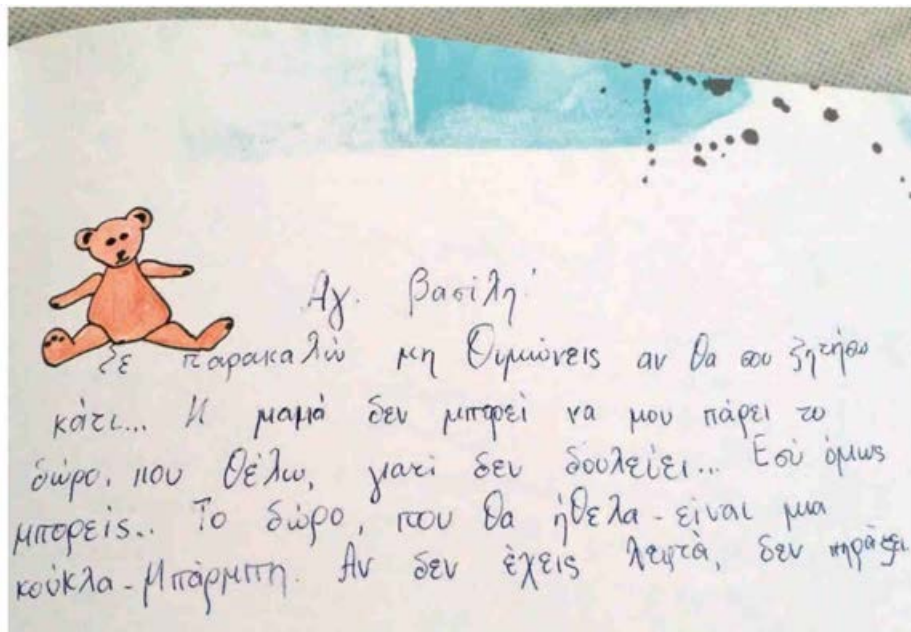 Αγ. Βασίλη!
Σε παρακαλώ μη θυμώνεις αν θα σου ζητήσω
κάτι... Η μαμά δεν μπορεί να μου πάρει το
δώρο, που θέλω, γιατί δεν δουλεύει... Εσύ όμως
μπορείς.. Το δώρο, που θα ήθελα - είναι μια
κούκλα - Μπάρμπη. Αν δεν έχεις λεφτά, δεν πηράζει